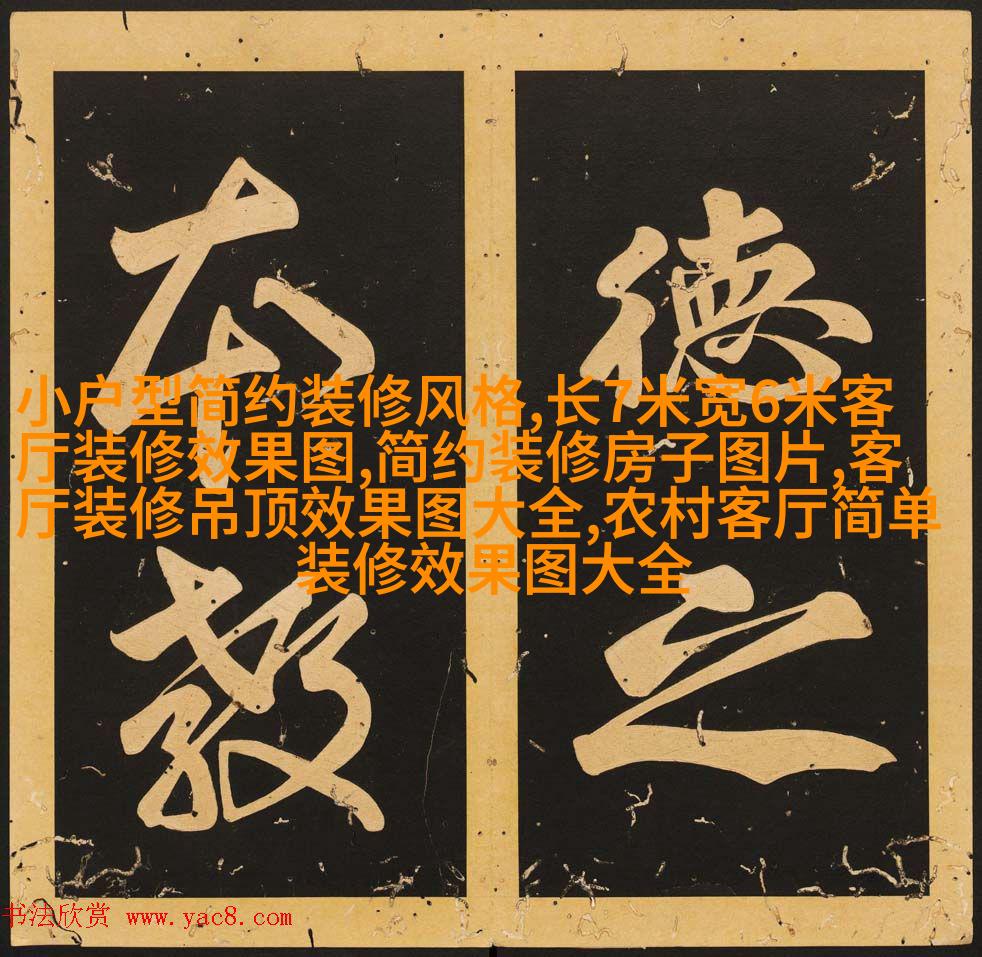 德
之
本
教
小户型简约装修风格,长7米宽6米客
厅装修效果图,简约装修房子图片,客
厅装修吊顶效果图大全,农村客厅简单
装修效果图大全
书法欣赏 www.yac8.com